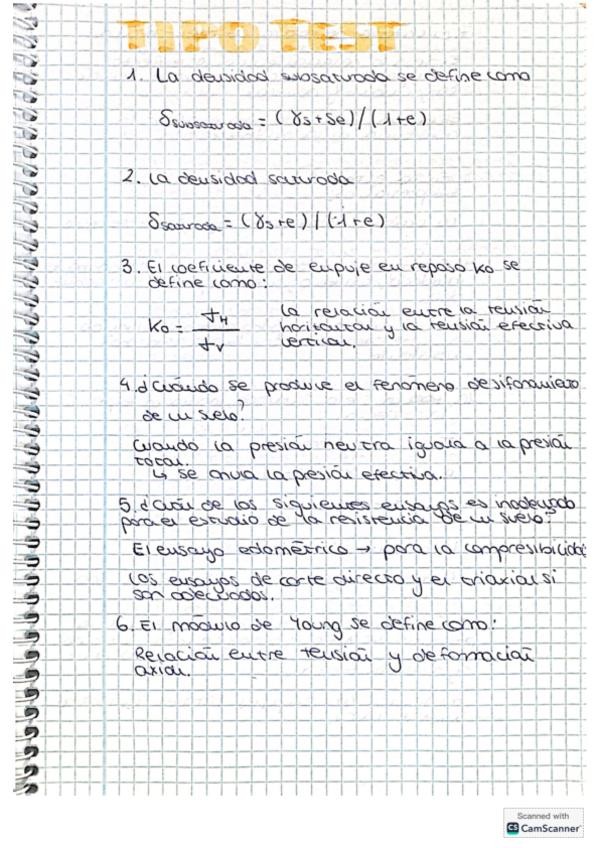 TIPO TEST
1. La densidad subsaturada se define como
δsubsaturada = (γs + Se) / (1+e)
2. La densidad saturada
δsaturada = (γs + e) / (1+e)
3. El coeficiente de empuje en reposo Ko se
define como:
Ko = σH / σv
La relación entre la tensión
horizontal y la tensión efectiva
vertical.
4. ¿Cuándo se produce el fenómeno de sifonamiento
de un suelo?
Cuando la presión neutra iguala a la presión
total.
↳ se anula la presión efectiva.
5. ¿Cuál de los siguientes ensayos es inadecuado
para el estudio de la resistencia de un suelo?
El ensayo edométrico → para la compresibilidad
Los ensayos de corte directo y el triaxial si
son adecuados.
6. El módulo de Young se define como:
Relación entre tensión y deformación
axial.
Scanned with
CS CamScanner